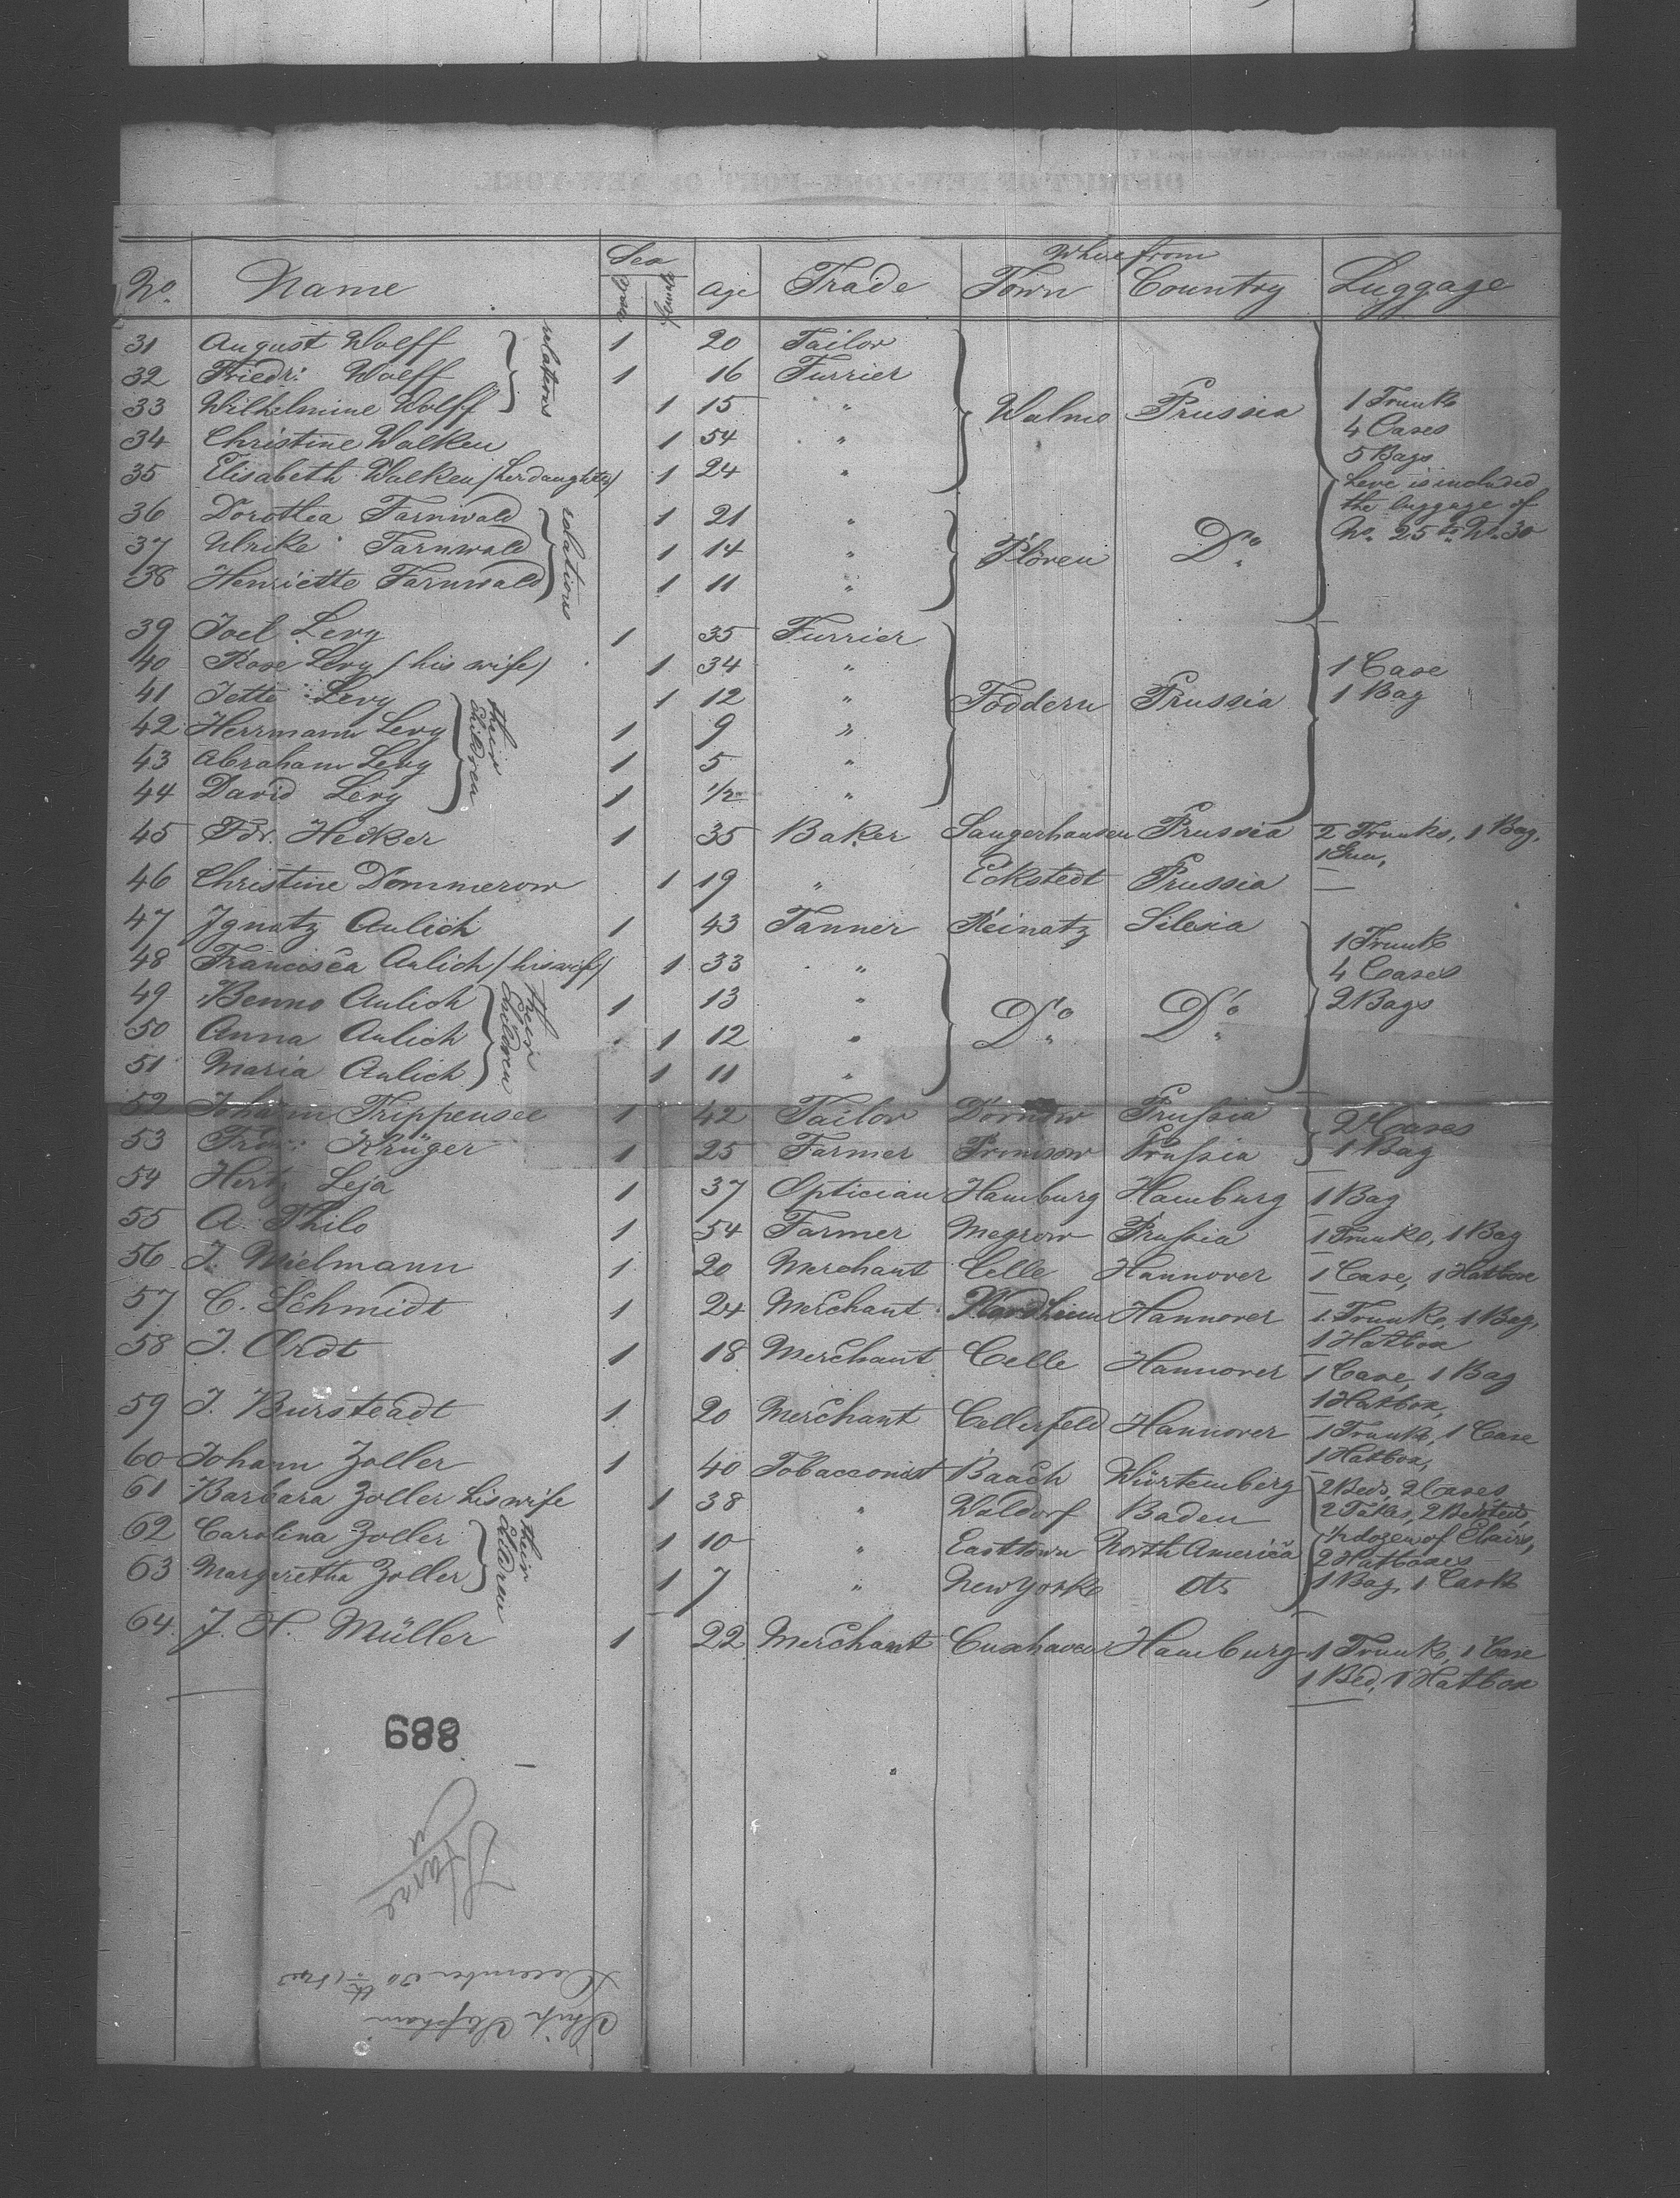 Sex Where from
No. Name Male Female Age Trade Town Country Luggage
31 August Wolff 1 20 Tailor
32 Friedr: Wolff 1 16 Furrier
33 Wilhelmine Wolff 1 15 " Prussia 1 Trunk
relations
34 Christine Walken 1 54 " 4 Cases
35 Elisabeth Walken (her daughter) 1 24 " 5 Bags
here is included
36 Dorothea Farnwald 1 21 " the luggage of
37 Ulrike Farnwald 1 14 " Do. No. 25 to No. 30
38 Henriette Farnwald 1 11 "
relations
39 Joel Levy 1 35 Furrier
40 Rose Levy (his wife) 1 34 " 1 Case
41 Jette Levy 1 12 " Foddern Prussia 1 Bag
42 Herrmann Levy 1 9 "
43 Abraham Levy 1 5 "
44 David Levy 1 1/2 "
their children
45 Fdr. Hecker 1 35 Baker Sangerhausen Prussia 2 Trunks, 1 Bag,
46 Christine Dommerow 1 19 " Eckstedt Prussia —
47 Ignatz Aulich 1 43 Tanner Reinatz Silesia 1 Trunk
48 Francisca Aulich (his wife) 1 33 " 4 Cases
49 Benno Aulich 1 13 " Do. Do. 2 Bags
50 Anna Aulich 1 12 "
51 Maria Aulich 1 11 "
their children
52 Johann Trippensee 1 42 Tailor Prussia 2 Cases
53 Krüger 1 25 Farmer Prussia 1 Bag
54 Hertz Leja 1 37 Optician Hamburg Hamburg 1 Bag
55 A. Thilo 1 54 Farmer Megrow Prussia 1 Trunk, 1 Bag
56 J. Mielmann 1 20 Merchant Celle Hannover 1 Case, 1 Hatbox
57 C. Schmidt 1 24 Merchant Hannover 1 Trunk, 1 Bag,
1 Hatbox
58 J. Ordt 1 18 Merchant Celle Hannover 1 Case, 1 Bag
1 Hatbox,
59 J. Bursteadt 1 20 Merchant Cellerfeld Hannover 1 Trunk, 1 Case
1 Hatbox,
60 Johann Zoller 1 40 Tobacconist Baach Würtemberg 2 Beds, 2 Cases
61 Barbara Zoller his wife 1 38 " Waldorf Baden 2 Tables, 2 Bedsteds,
62 Carolina Zoller 1 10 " Easttown North America 1/2 dozen of Chairs,
2 Hatboxes
63 Margaretha Zoller 1 7 " New York dto. 1 Bag, 1 Cask
their children
64. J. H. Müller 1 22 Merchant Cuxhaven Hamburg 1 Trunk, 1 Case
1 Bed, 1 Hatbox
689
December 30th
Ship Stephani